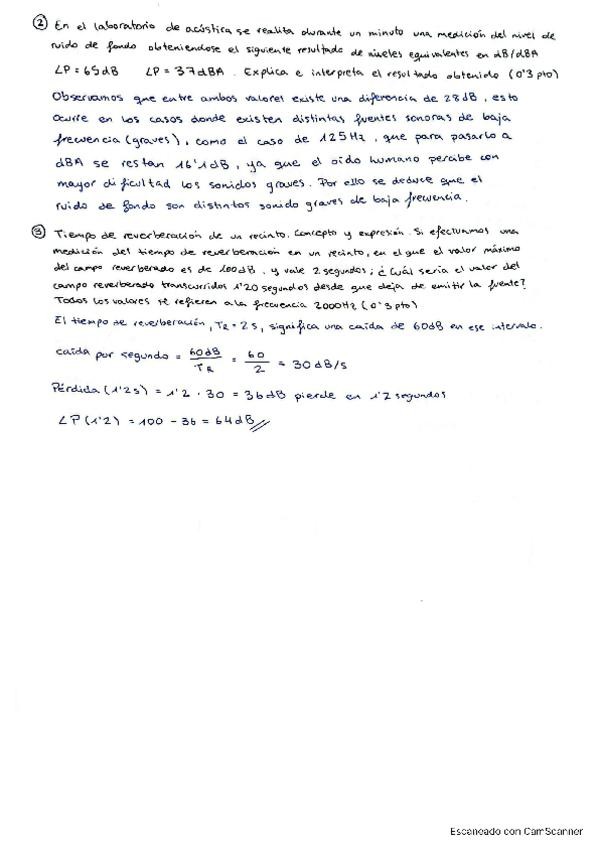 ② En el laboratorio de acústica se realiza durante un minuto una medición del nivel de
ruido de fondo obteniendose el siguiente resultado de niveles equivalentes en dB/dBA
LP = 65 dB LP = 37 dBA. Explica e interpreta el resultado obtenido (0'3 pto)
Observamos que entre ambos valores existe una diferencia de 28 dB, esto
ocurre en los casos donde existen distintas fuentes sonoras de baja
frecuencia (graves), como el caso de 125 Hz, que para pasarlo a
dBA se restan 16'1 dB, ya que el oido humano percibe con
mayor dificultad los sonidos graves. Por ello se deduce que el
ruido de fondo son distintos sonido graves de baja frecuencia.
③ Tiempo de reverberación de un recinto. Concepto y expresión. Si efectuamos una
medición del tiempo de reverberación en un recinto, en el que el valor máximo
del campo reverberado es de 100 dB. y vale 2 segundos; ¿Cuál sería el valor del
campo reverberado transcurridos 1'20 segundos desde que deja de emitir la fuente?
Todos los valores se refieren a la frecuencia 2000 Hz (0'3 pto)
El tiempo de reverberación, TR = 2 s, significa una caída de 60 dB en ese intervalo.
caída por segundo = 60 dB / TR = 60 / 2 = 30 dB/s
Pérdida (1'2 s) = 1'2 · 30 = 36 dB pierde en 1'2 segundos
LP (1'2) = 100 - 36 = 64 dB //
Escaneado con CamScanner